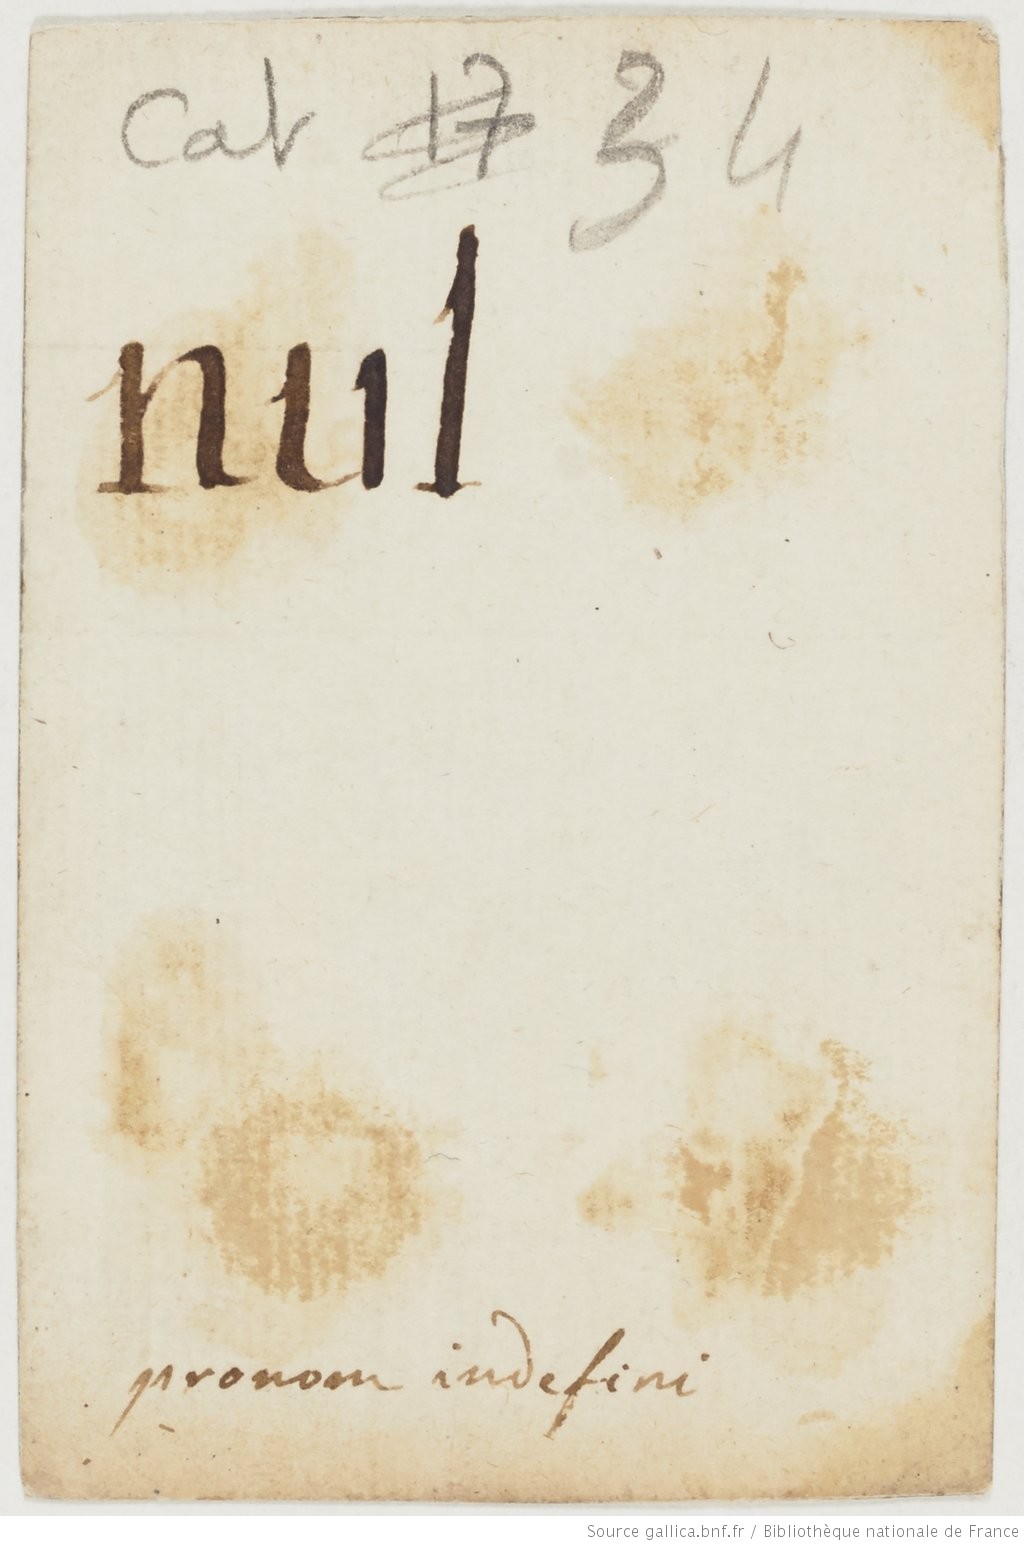 Cat 17 34
nul
pronom indefini
Source gallica.bnf.fr / Bibliothèque nationale de France